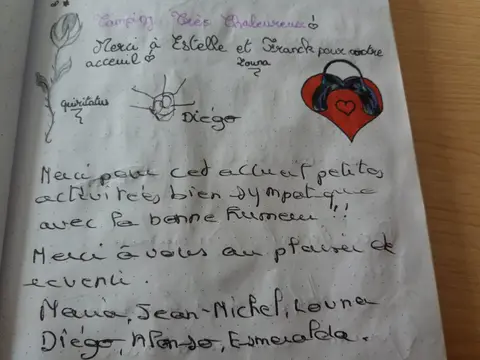 Camping Très Chaleureux !
Merci à Estelle et Franck pour votre
acceuil
Louna
Diégo
Merci pour cet acceuil petites
activitées bien sympatque
avec la bonne humeur !!
Merci à vous au plaisir de
revenir.
Maria, Jean-Michel, Louna
Diégo, Afonso, Esmeralda.